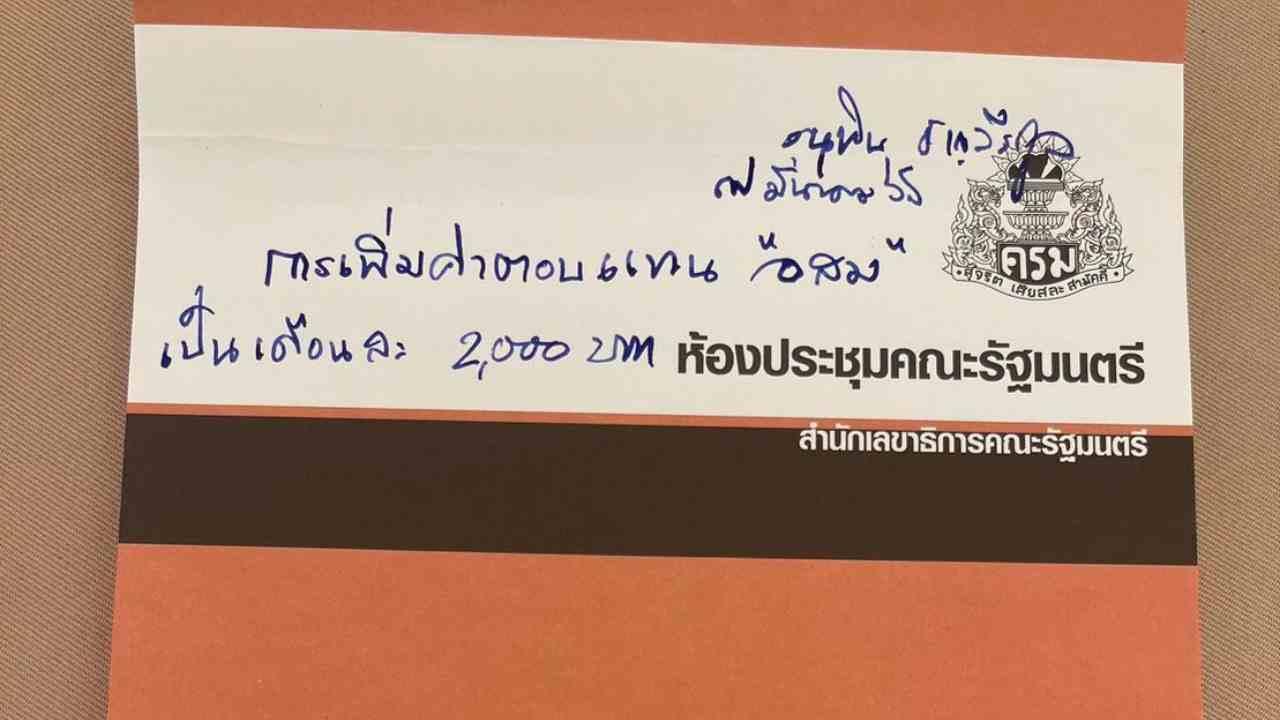 อนุทิน ชาญวีรกูล
การเพิ่มค่าตอบแทน "อสม"
เป็นเดือนละ 2,000 บาท
ครม
สุจริต เสียสละ สามัคคี
ห้องประชุมคณะรัฐมนตรี
สำนักเลขาธิการคณะรัฐมนตรี